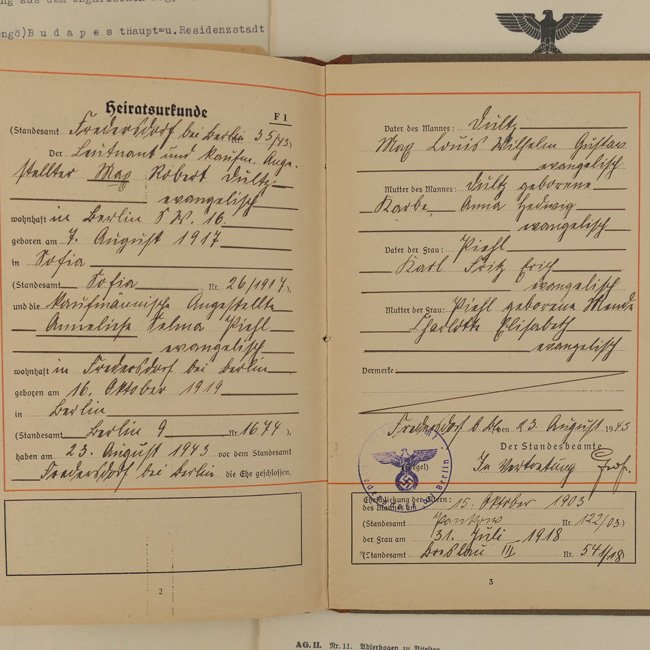 ng aus dem ungarischen Ang.
ongö)B u d a p e s tHaupt=u.Residenzstadt
Heiratsurkunde
F 1
(Standesamt Fredersdorf bei Berlin 35/43)
Der Leutnant und kaufm. Ange-
stellter Max Robert Dultz
evangelisch
wohnhaft in Berlin S.W. 16
geboren am 7. August 1917
in Sofia
(Standesamt Sofia Nr. 26/1917),
und die kaufmännische Angestellte
Anneliese Selma Piehl
evangelisch
wohnhaft in Fredersdorf bei Berlin
geboren am 16. Oktober 1919
in Berlin
(Standesamt Berlin 9 Nr. 1674),
haben am 23. August 1943 vor dem Standesamt
Fredersdorf bei Berlin die Ehe geschlossen.
2
Vater des Mannes: Dultz
Max Louis Wilhelm Gustav
evangelisch
Mutter des Mannes: Dultz geborene
Karbe Anna Hedwig
evangelisch
Vater der Frau: Piehl
Karl Fritz Erich
evangelisch
Mutter der Frau: Piehl geborene Mende
Charlotte Elisabeth
evangelisch
Vermerke
Fredersdorf b. Bln den 23. August 1943
Der Standesbeamte
(Siegel) In Vertretung
Eheschließung der Eltern:
des Mannes am 15. Oktober 1903
(Standesamt Pankow Nr. 122/03)
der Frau am 31. Juli 1918
(Standesamt Breslau III Nr. 541/18)
3
AG. II. Nr. 11. Adlerbogen zu Attesten